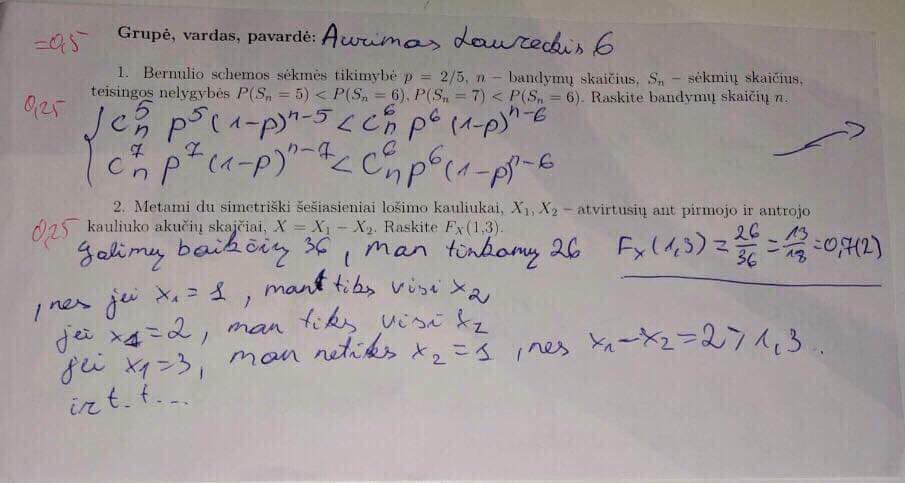 =0,5
Grupė, vardas, pavardė: Aurimas Laureckis 6
1. Bernulio schemos sėkmės tikimybė p = 2/5, n – bandymų skaičius, Sₙ – sėkmių skaičius,
teisingos nelygybės P(Sₙ = 5) < P(Sₙ = 6), P(Sₙ = 7) < P(Sₙ = 6). Raskite bandymų skaičių n.
0,25
{ C⁵ₙ p⁵ (1-p)ⁿ⁻⁵ < C⁶ₙ p⁶ (1-p)ⁿ⁻⁶
C⁷ₙ p⁷ (1-p)ⁿ⁻⁷ < C⁶ₙ p⁶ (1-p)ⁿ⁻⁶
2. Metami du simetriški šešiasieniai lošimo kauliukai, X₁, X₂ – atvirtusių ant pirmojo ir antrojo
0,25
kauliuko akučių skaičiai, X = X₁ − X₂. Raskite F_X(1,3).
galimų baikčių 36, man tinkamų 26 F_X(1,3) = 26/36 = 13/18 = 0,7(2)
, nes jei x₁ = 1, man tiks visi x₂
jei x₁ = 2, man tiks visi x₂
jei x₁ = 3, man netiks x₂ = 1, nes x₁ − x₂ = 2 > 1,3..
ir t. t...